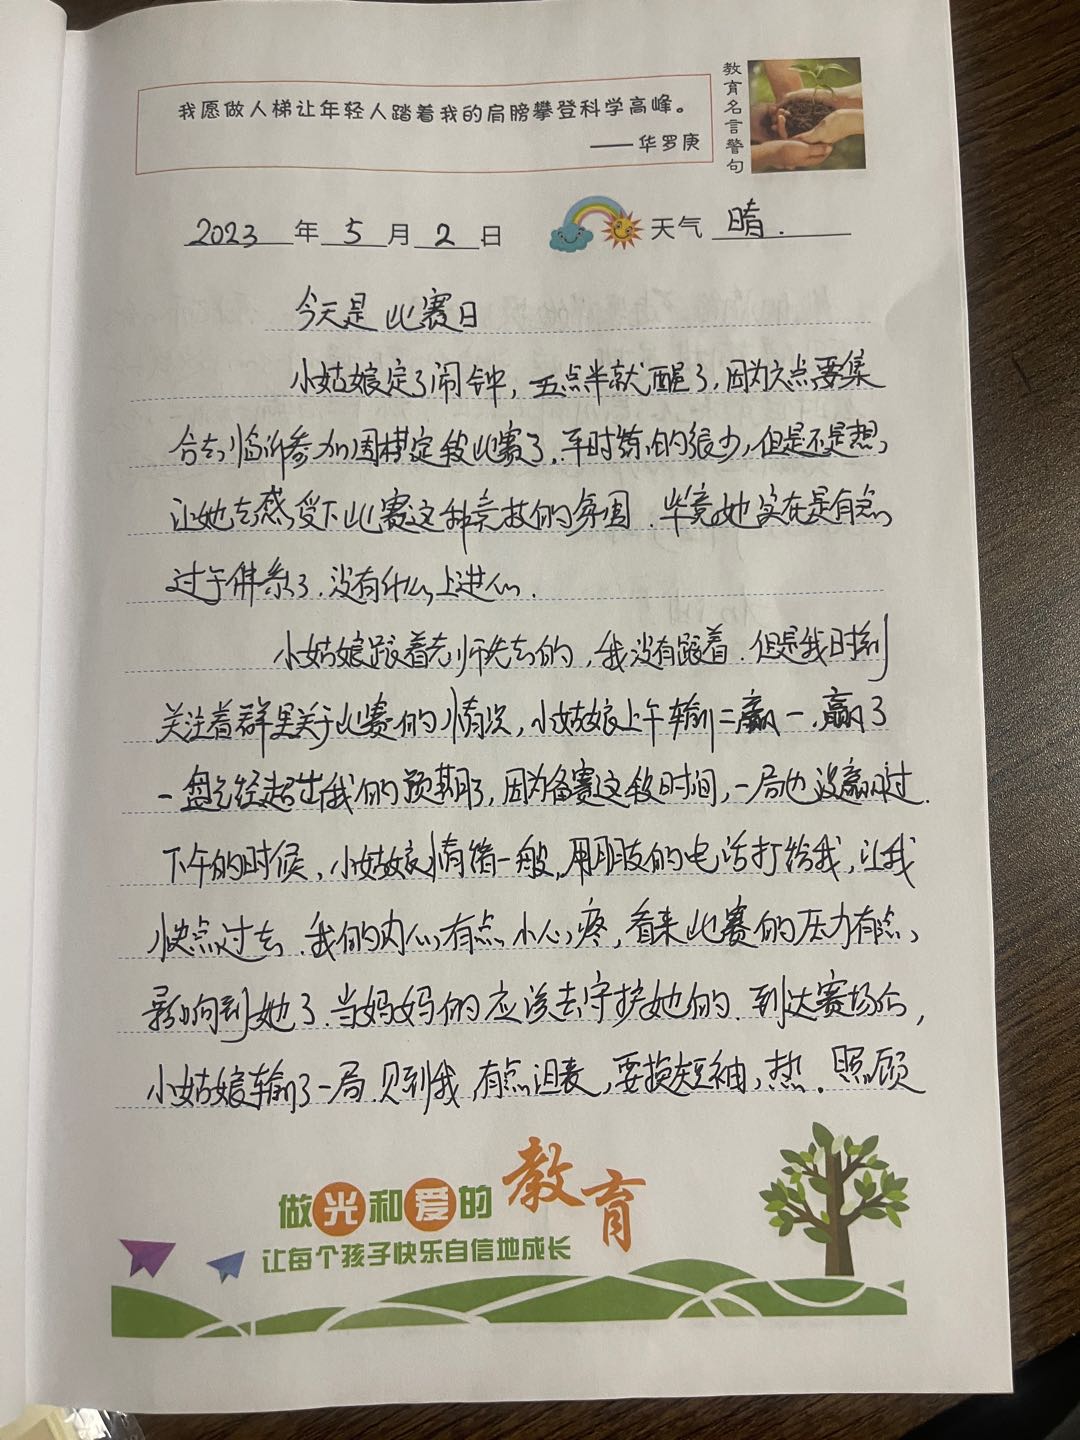 我愿做人梯让年轻人踏着我的肩膀攀登科学高峰。
——华罗庚
教育名言警句
2023年5月2日 天气 晴.
今天是比赛日
小姑娘定了闹钟，五点半就醒了，因为六点要集
合去临沂参加围棋定段比赛了.平时练的很少,但是还是想,
让她去感受下比赛这种竞技的氛围.毕竟她实在是有点
过于佛系了.没有什么上进心.
小姑娘跟着老师先去的,我没有跟着.但是我时刻
关注着群里关于比赛的情况,小姑娘上午输二赢一.赢了
一盘已经超出我的预期了,因为备赛这段时间,一局也没赢过.
下午的时候,小姑娘情绪一般,用朋友的电话打给我,让我
快点过去.我的内心有点小心疼,看来比赛的压力有点
影响到她了.当妈妈的应该去守护她的.到达赛场后,
小姑娘输了一局.见到我,有点沮丧,要换短袖,热.照顾
做光和爱的教育
让每个孩子快乐自信地成长